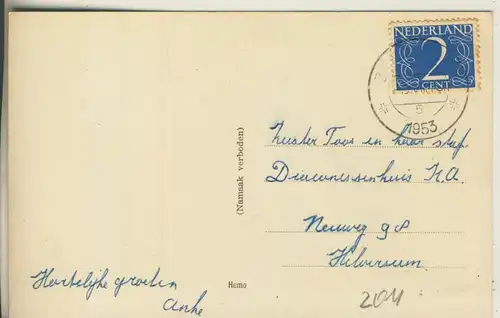 NEDERLAND
2
CENT
5
1953
Zuster Toos en haar staf.
Diaconessenhuis K.A.
Neuweg 98
Hilversum.
(Namaak verboden)
Hartelijke groeten
Anke
Hemo
204